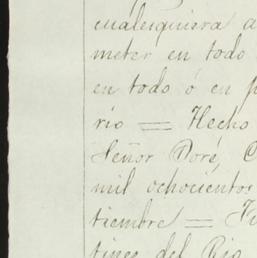 cualesquiera a
meter en todo
en todo ó en p
rio = Hecho
Señor Doré, C
mil ochocientos
tiembre = Fu
tines del Rio